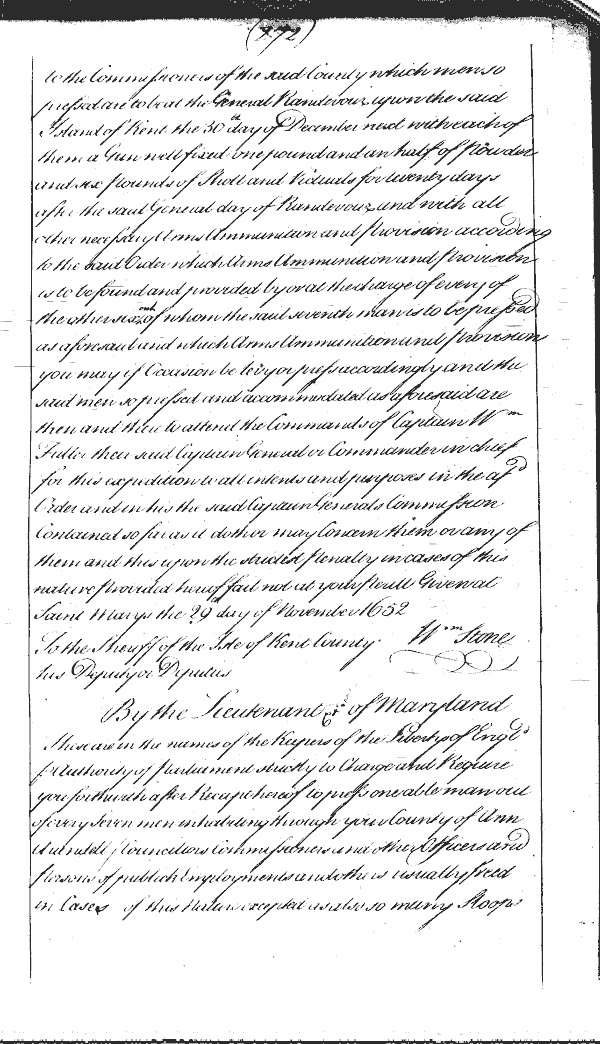 (272)
to the Commissioners of the said County which men so
pressed are to be at the General Randevouz upon the said
Island of Kent the 30th day of December next with each of
them a Gun well fixed one pound and an half of Powder
and six pounds of Shott and Victuals for twenty days
after the said General day of Randevouz and with all
other necessary Arms Ammunition and provision according
to the said Order which Arms Ammunition and provision
is to be found and provided by or at the charge of every of
the other six out of whom the said seventh man is to be pressed
as aforesaid and which Arms Ammunition and provision
you may if Occasion be levy or press accordingly and the
said men so pressed and accommodated as aforesaid are
then and there to attend the Commands of Captain Wm
Fuller then said Captain General or Commander in chief
for this expedition to all intents and purposes in the afd
Order and in his the said Captain Generals Commission
Contained so far as it doth or may Concern them or any of
them and this upon the strictest penalty in cases of this
nature provided hereof fail not at your perill Given at
Saint Marys the 29th day of November 1652
To the Sheriff of the Isle of Kent County Wm Stone
his Deputy or Deputies
By the Lieutenant &ct of Maryland
These are in the names of the Keepers of the Liberty of Engld
by Authority of Parliament strictly to Charge and Require
you forthwith after Receipt hereof to press one able man out
of every seven men inhabiting through your County of Ann
Arundell (Councillors Commissioners and other Officers and
persons of publick Employments and others usually freed
in Cases of this nature excepted as also so many Sloops